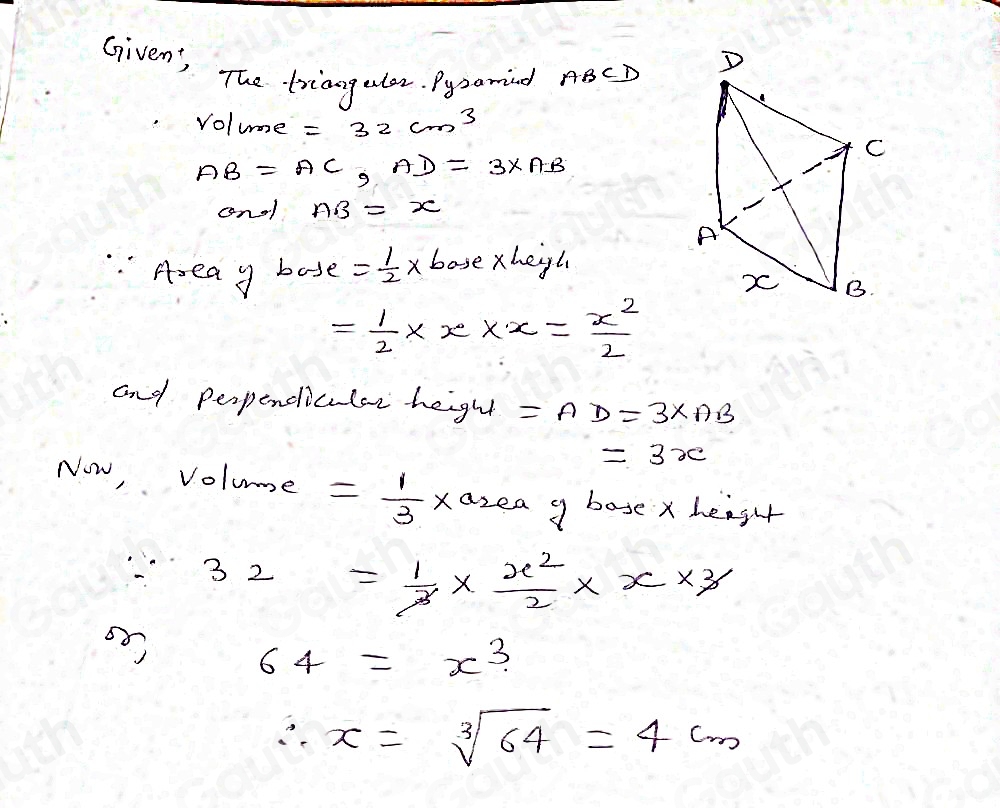 Given;
The triangular Pyramid ABCD
Volume = 32 cm³
AB = AC, AD = 3×AB
and AB = x
∵ Area of base = 1/2 × base × heigh
= 1/2 × x × x = x²/2
and perpendicular height = AD = 3×AB
= 3x
Now, Volume = 1/3 × area of base × height
∵ 32 = 1/3 × x²/2 × x × 3
or, 64 = x³
∴ x = ∛64 = 4 cm
D
C
A
x
B.